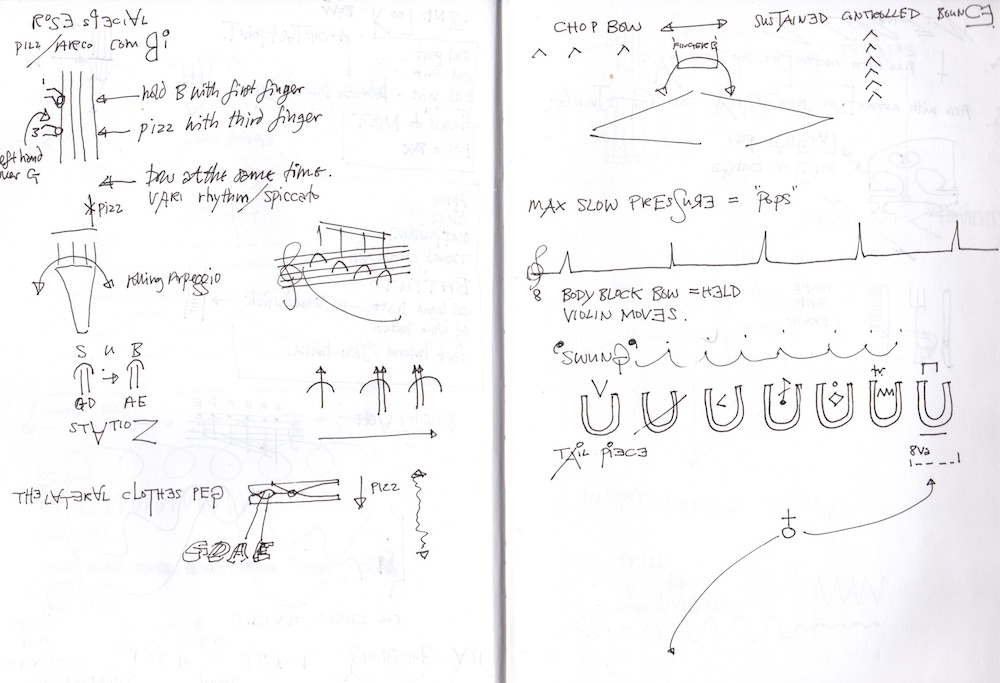 ROSE SPECIAL
PIZZ/ARCO COMBi
1
hold B with first finger
3
pizz with third finger
left hand
over G
bow at the same time.
VARI rhythm/spiccato
*PIZZ
rolling Arpeggio
S U B
GD AE
STATIO
THE LATERAL CLOTHES PEG
PIZZ
GDAE
CHOP BOW SUSTAINED CONTROLLED BOUNCE
FINGERB
MAX SLOW PRESSURE = "POPS"
8 BODY BLOCK BOW = HELD
VIOLIN MOVES.
"SWUNG"
tr
TAIL PIECE
8va